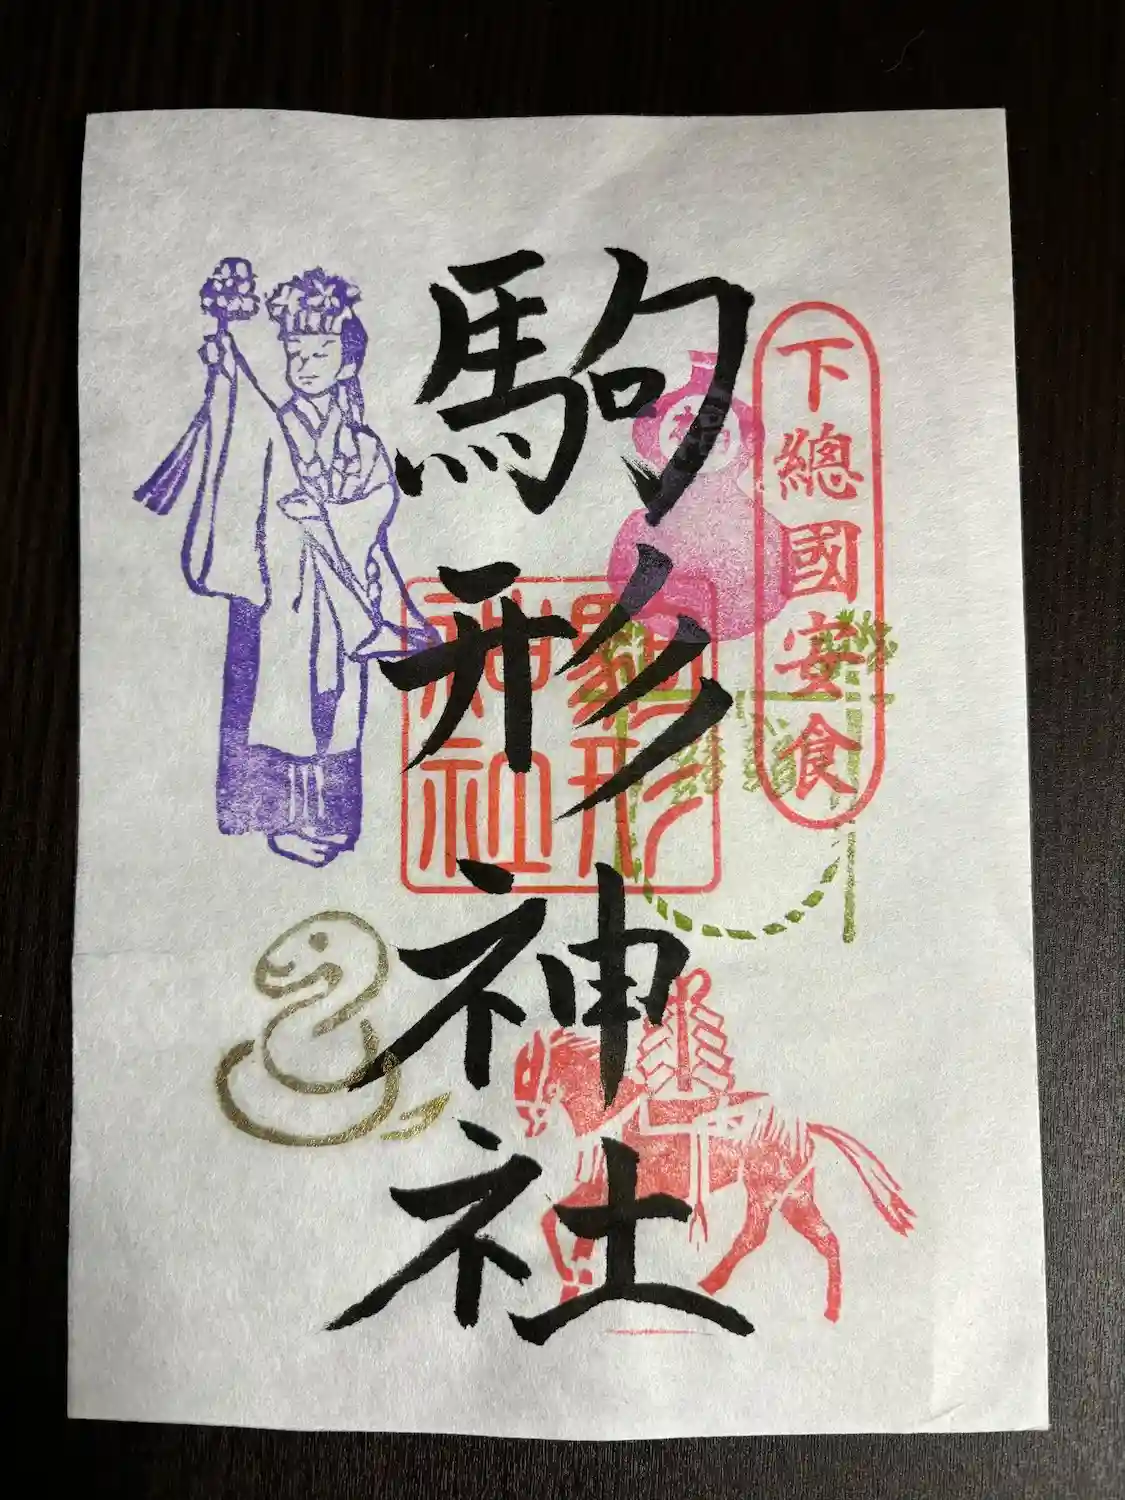 下總國安食
福
駒形神社
駒形
神社